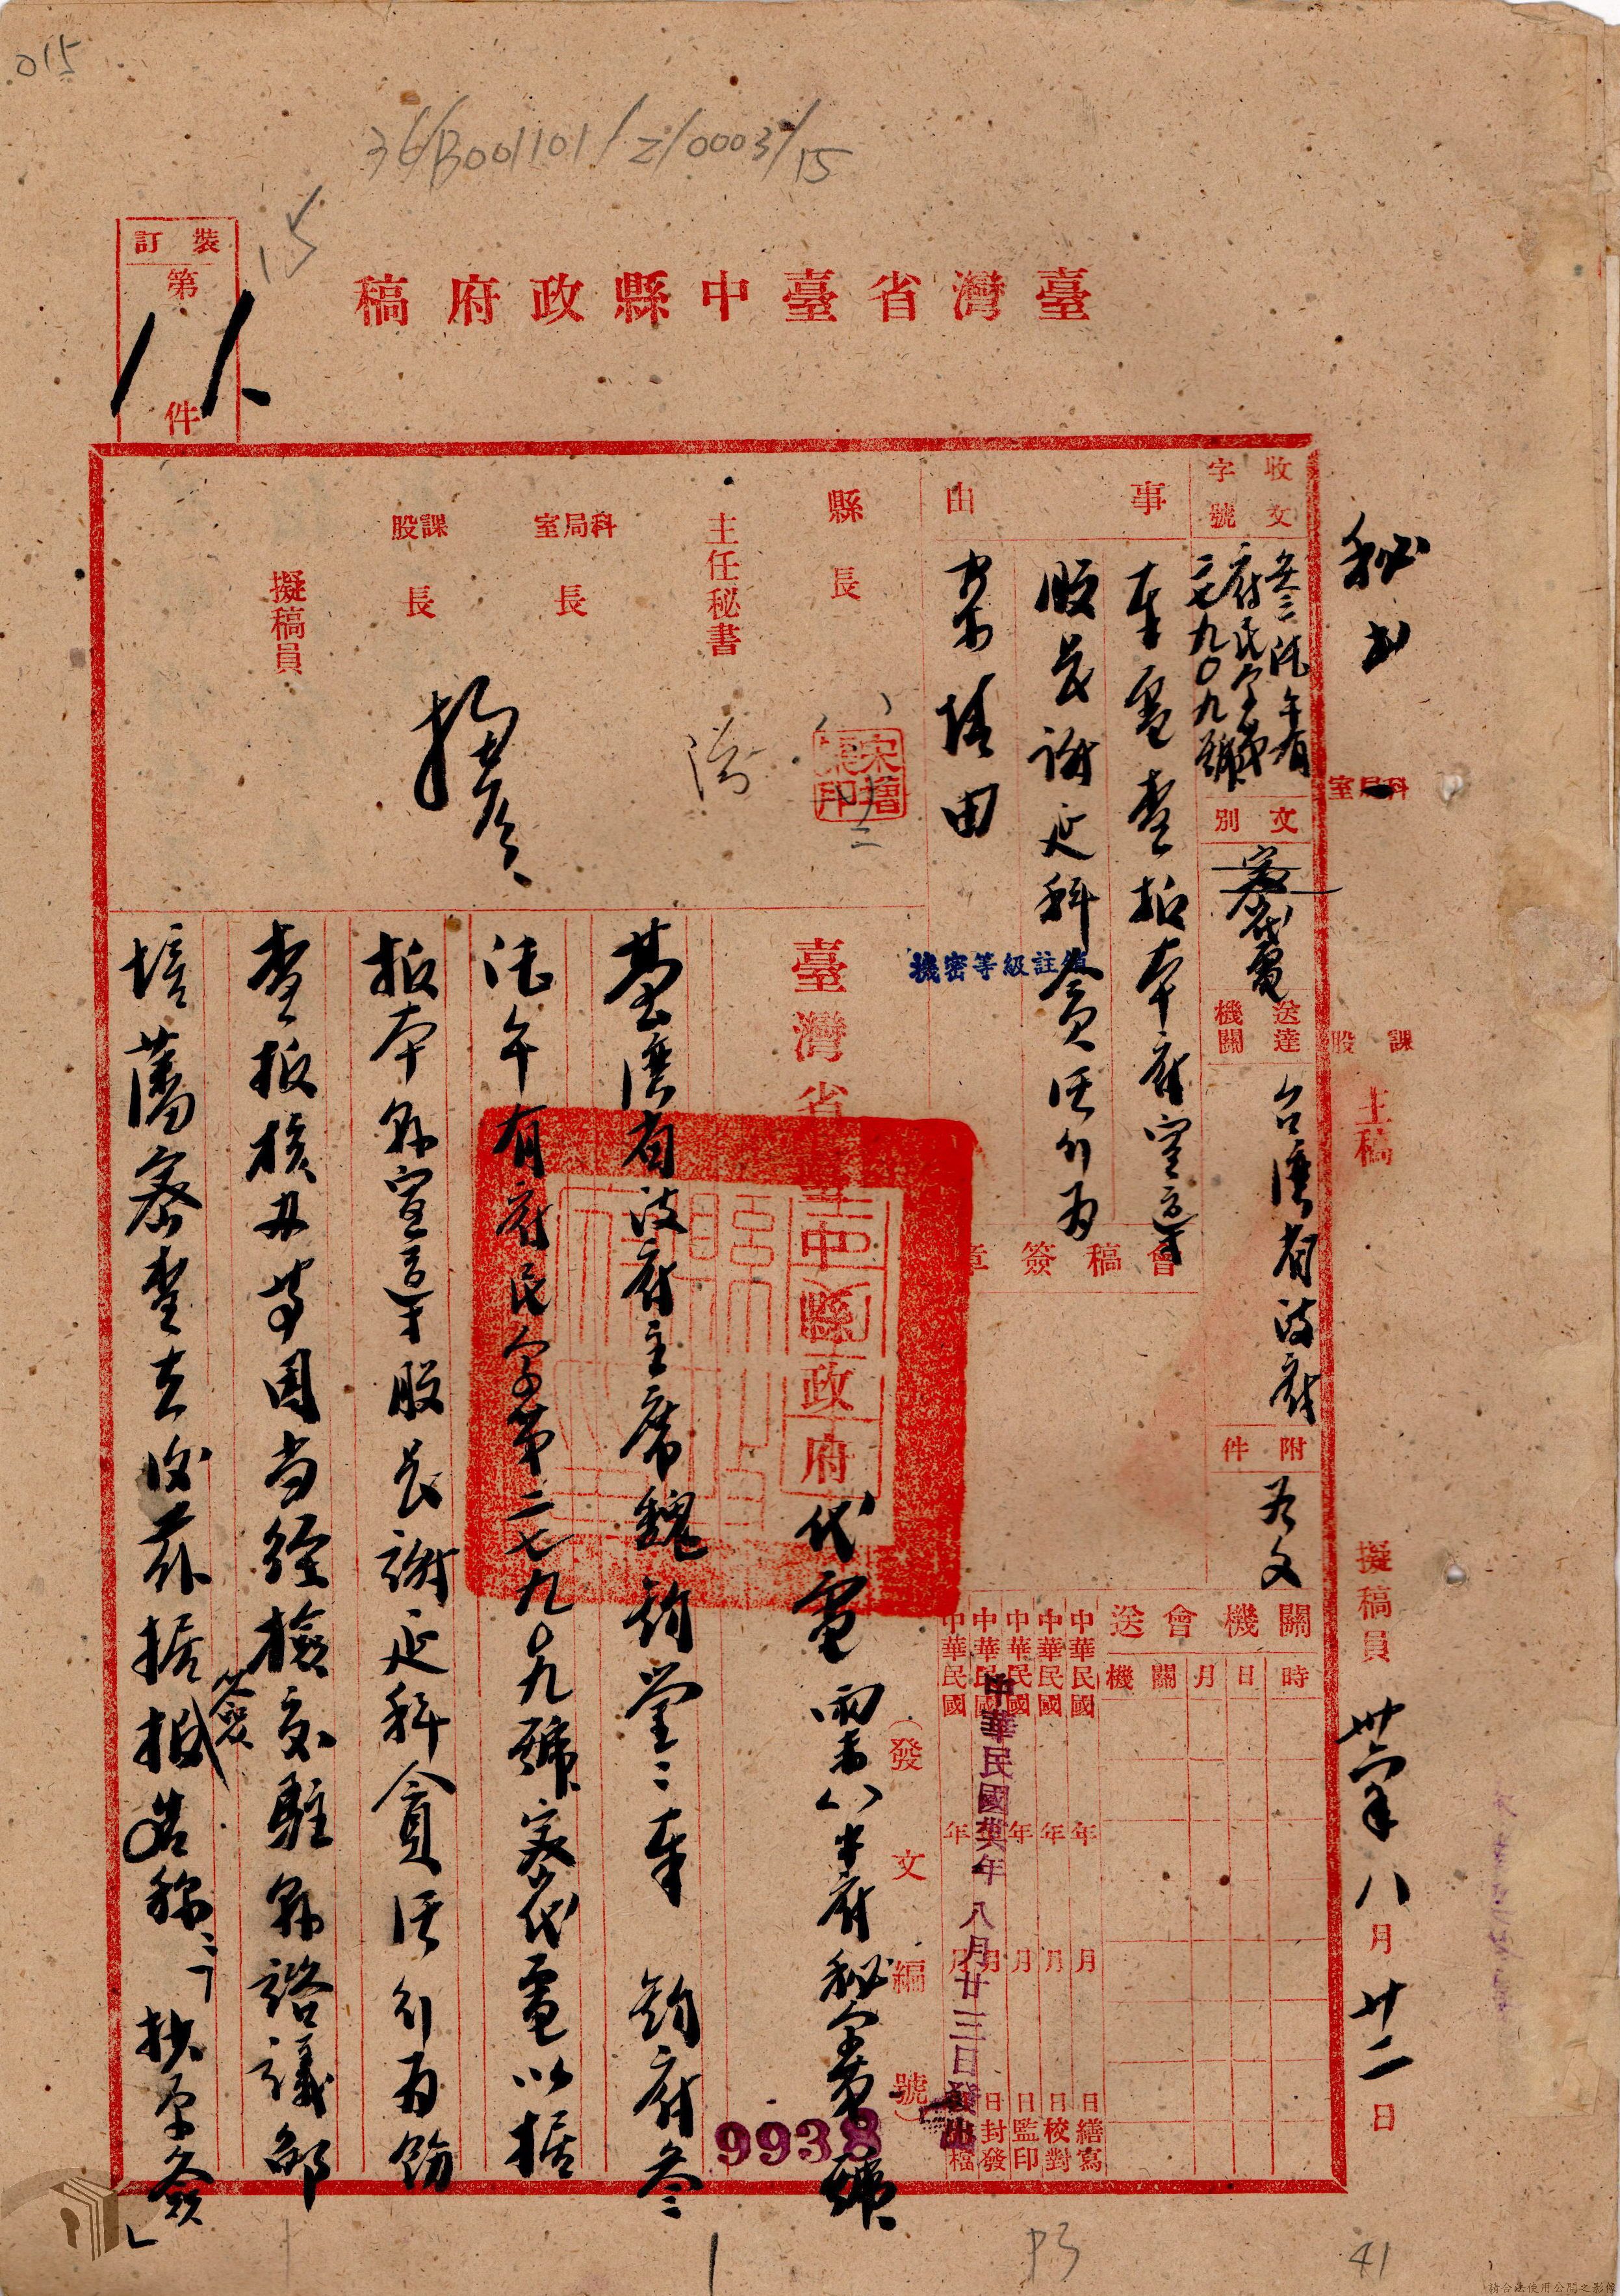 015
36/B001101/2/0003/15
15
裝訂
第
件
臺灣省臺中縣政府稿
秘書
科局室
課股
主稿
擬稿員
卅六年八月廿二日
收文字號
叁六未午有
府民字第
二七九〇九號
文別
密代電
送達機關
台灣省政府
附件
如文
事由
奉電查報本府宣導
股長謝延科貪污行為
案情由
機密等級註銷
會稿簽章
關機會送
時
日
月
機關
中華民國年月日繕寫
中華民國年月日校對
中華民國年月日監印
中華民國年月日封發
中華民國年月日歸檔
中華民國卅六年八月廿三日發出
縣長
主任秘書
科局室長
課股長
擬稿員
臺灣省臺中縣政府代電
(發文編號)
9938
府秘字第號
臺灣省政府主席魏鈞鑒:奉鈞府叁
未午有府民字第二七九〇九號密代電以據
報本縣宣導股長謝延科貪污行為飭
查報核辦等因當經檢交駐縣諮議邵
培蕃密查去後茲據報簽略稱:「抄原簽」
p3
41
請合法使用公開之影像